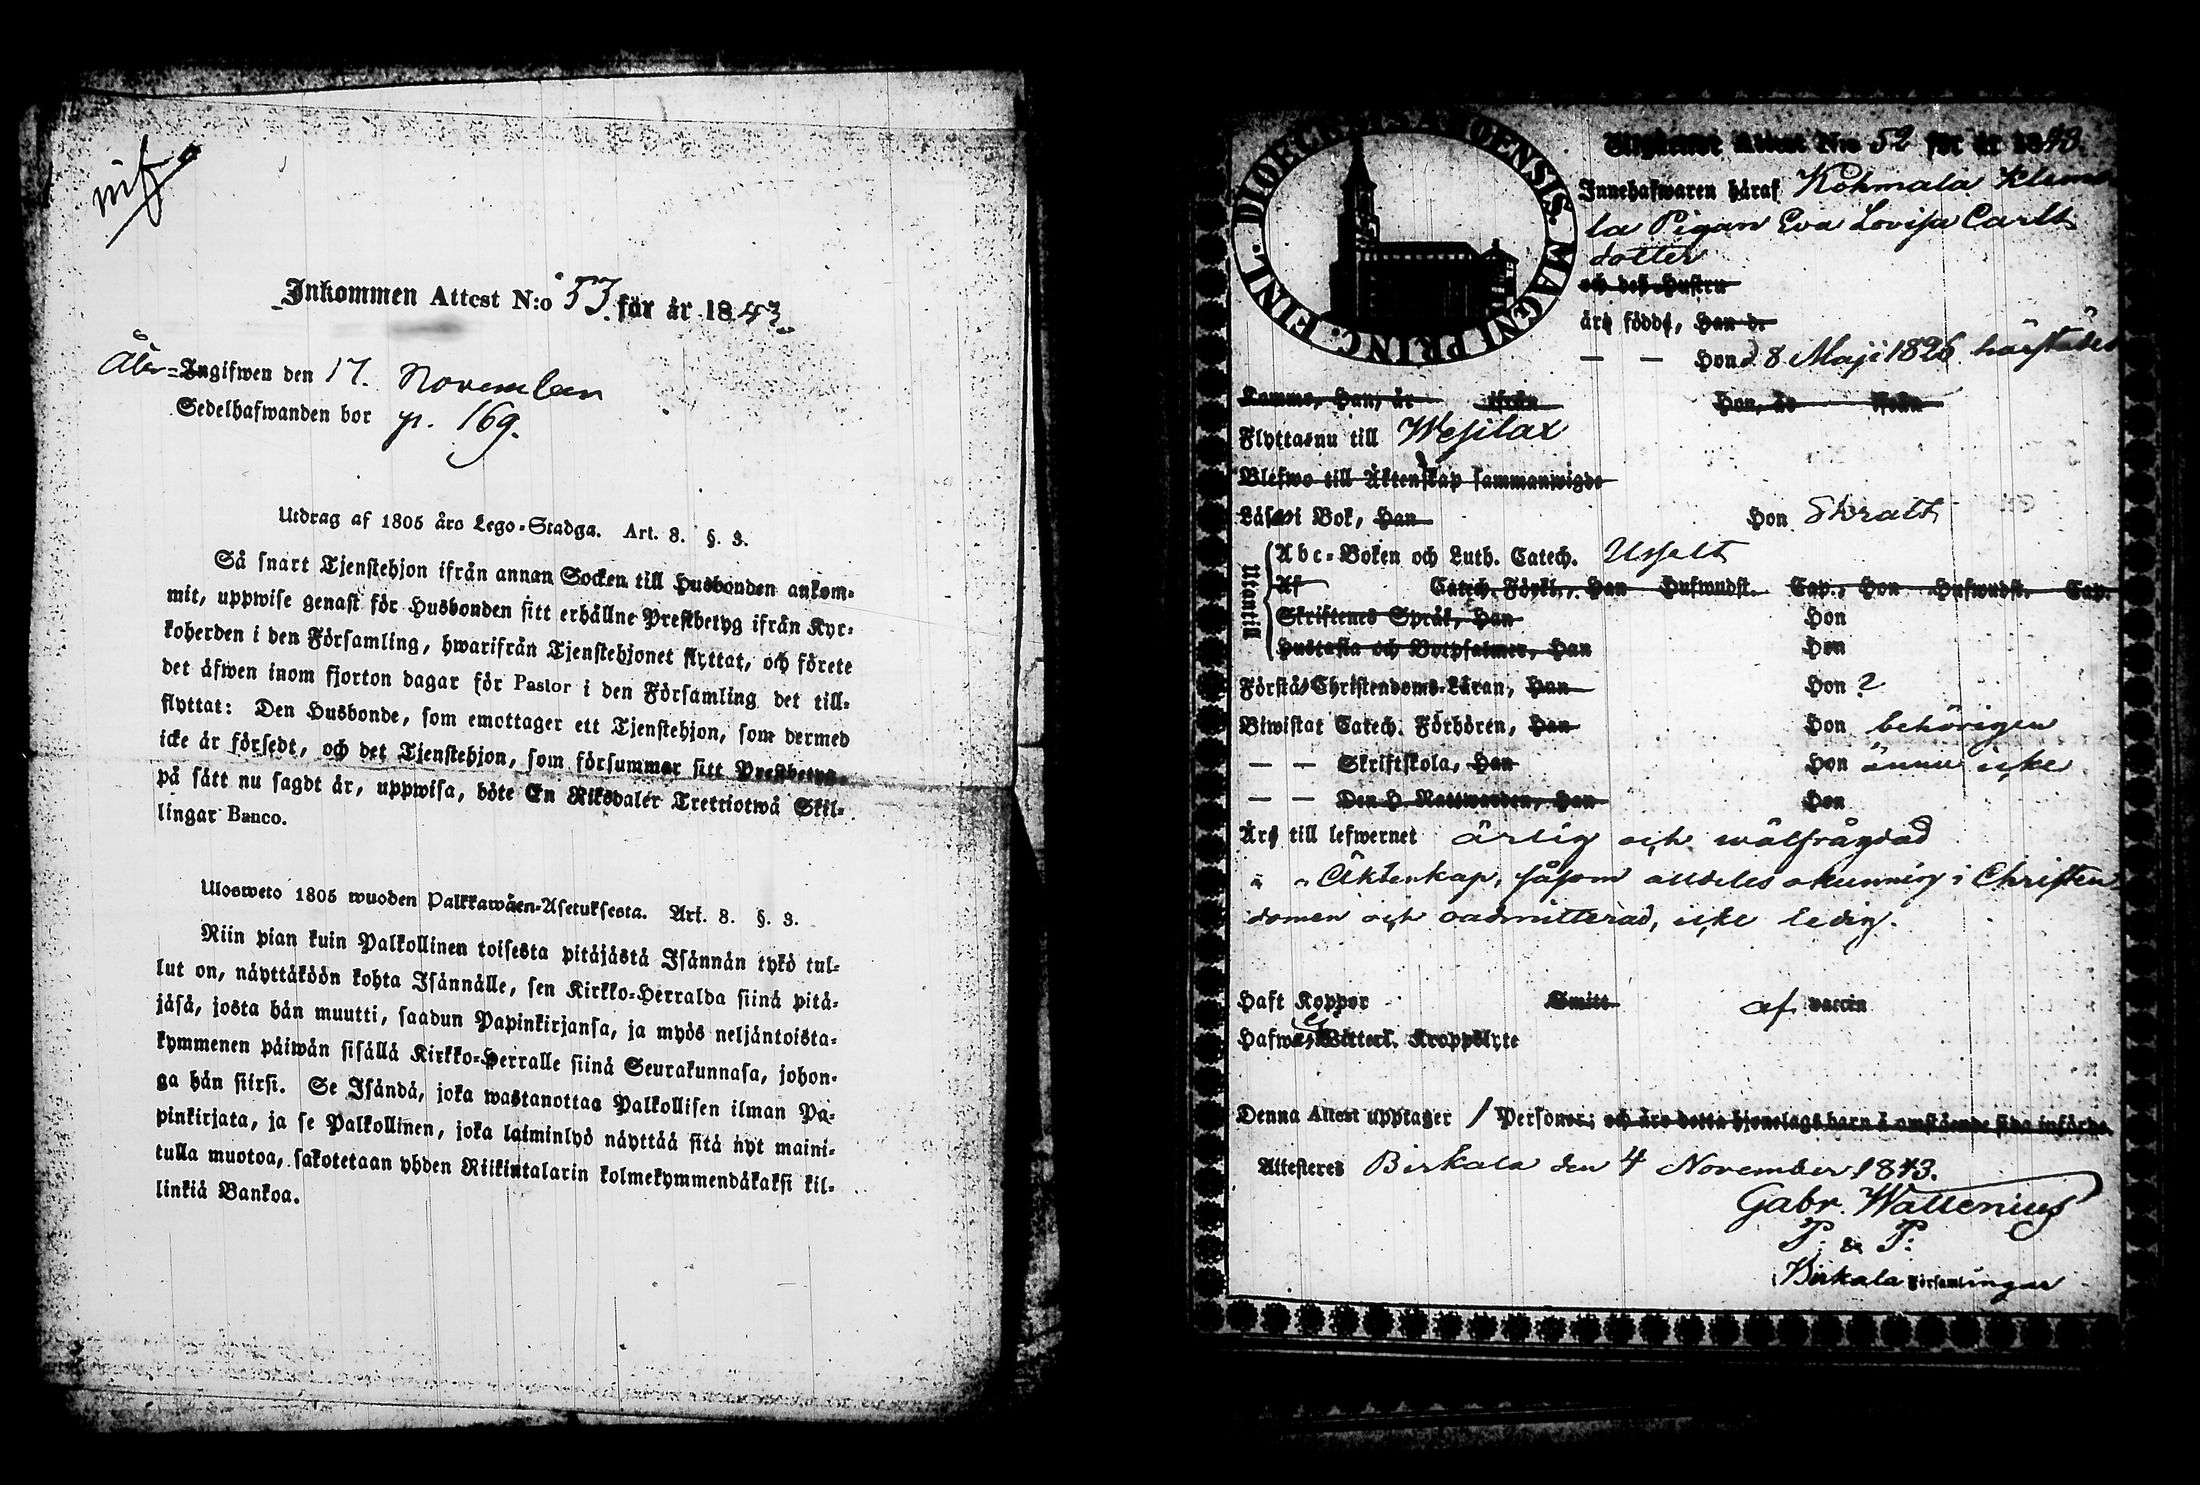 Inkommen Attest N:o 53 för år 1843.
Åter=Ingifwen den 17. November
Sedelhafwanden bor p. 169.
Utdrag af 1805 års Lego-Stadga. Art. 8. §. 3.
Så snart Tjenstehjon ifrån annan Socken till Husbonden ankom-
mit, uppwise genast för Husbonden sitt erhållne Prestbetyg ifrån Kyr-
koherden i den Församling, hwarifrån Tjenstehjonet flyttat, och förete
det äfwen inom fjorton dagar för Pastor i den Församling det till-
flyttat: Den Husbonde, som emottager ett Tjenstehjon, som dermed
icke är försedt, och det Tjenstehjon, som försummar sitt Prestbetyg,
på sätt nu sagdt är, uppwisa, böte En Riksdaler Trettiotwå Skil-
lingar Banco.
Ulosweto 1805 wuoden Palkkawäen-Asetuksesta. Art. 8. §. 3.
Niin pian kuin Palkollinen toisesta pitäjästä Isännän tykö tul-
lut on, näyttäköön kohta Isännälle, sen Kirkko-Herralda siinä pitä-
jäsä, josta hän muutti, saadun Papinkirjansa, ja myös neljäntoista-
kymmenen päiwän sisällä Kirkko-Herralle siinä Seurakunnasa, johon-
ga hän siirsi. Se Isändä, joka wastanottaa Palkollisen ilman Pa-
pinkirjata, ja se Palkollinen, joka laiminlyö näyttää sitä nyt maini-
tulla muotoa, sakotetaan yhden Riikintalarin kolmekymmendäkaksi kil-
linkiä Bankoa.
DIOECESIS ABOENSIS. MAGNI PRINC. FINL.
Utgånget Attest N:o 52 för år 1843.
Innehafwaren häraf Kohmala Klemo
la Pigan Eva Lovisa Carls
dotter
och deß Hustru
äro födde, Han d.
— — Hon d 8 Maji 1826 härstädes
Komme, Han, år ifrån Hon, år ifrån
Flytta nu till Wesilax
Blefwo till Äktenskap sammanwigde
Läser i Bok, Han Hon Swalt
Utantill
Abc-Boken och Luth. Catech. Usselt
Af Catech. Förkl., Han Hufwudst. Cap., Hon Hufwudst. Cap.
Skriftenes Språk, Han Hon
Hustafla och Botpsalmer, Han Hon
Förstå Christendoms-Läran, Han Hon ?
Biwistat Catech. Förhören, Han Hon behörigen
— — Skriftskola, Han Hon ännu icke
— — Den H. Nattwarden, Han Hon
Äro till lefwernet ärlig och wälfrägdad
" " Äktenkap, såsom alldeles okunnig i Christen
domen och oadmitterad, icke ledig.
Haft Koppor Smitt af vaccin
Hafwa Witterl. Kropplyte
Denna Attest upptager 1 Personer; och äro detta hjonelags barn å omstående sida införde.
Attesteras Birkala den 4 November 1843.
Gabr. Wallenius
P. & P.
Birkala Församlingar